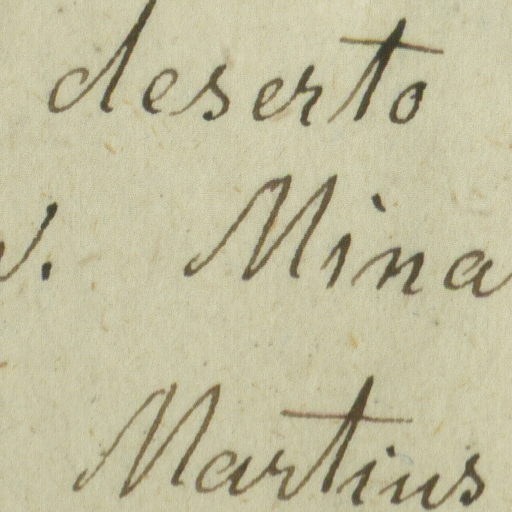 deserto
v. Mina
Martius